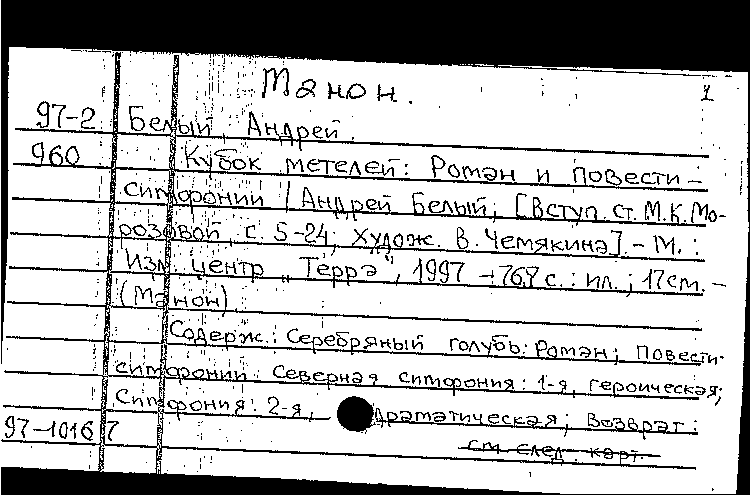 Манон. 1
97-2 Белый, Андрей.
960 Кубок метелей: Роман и повести-
симфонии / Андрей Белый; [Вступ. ст. М.К. Мо-
розовой, с. 5-24; Худож. В. Чемякина]. - М.:
Изд. центр „Терра", 1997 - 767 с.: ил.; 17 см. -
(Манон).
Содерж.: Серебряный голубь: Роман; Повести-
симфонии: Северная симфония: 1-я, героическая;
Симфония: 2-я, драматическая; Возврат:
97-10167 см. след. карт.